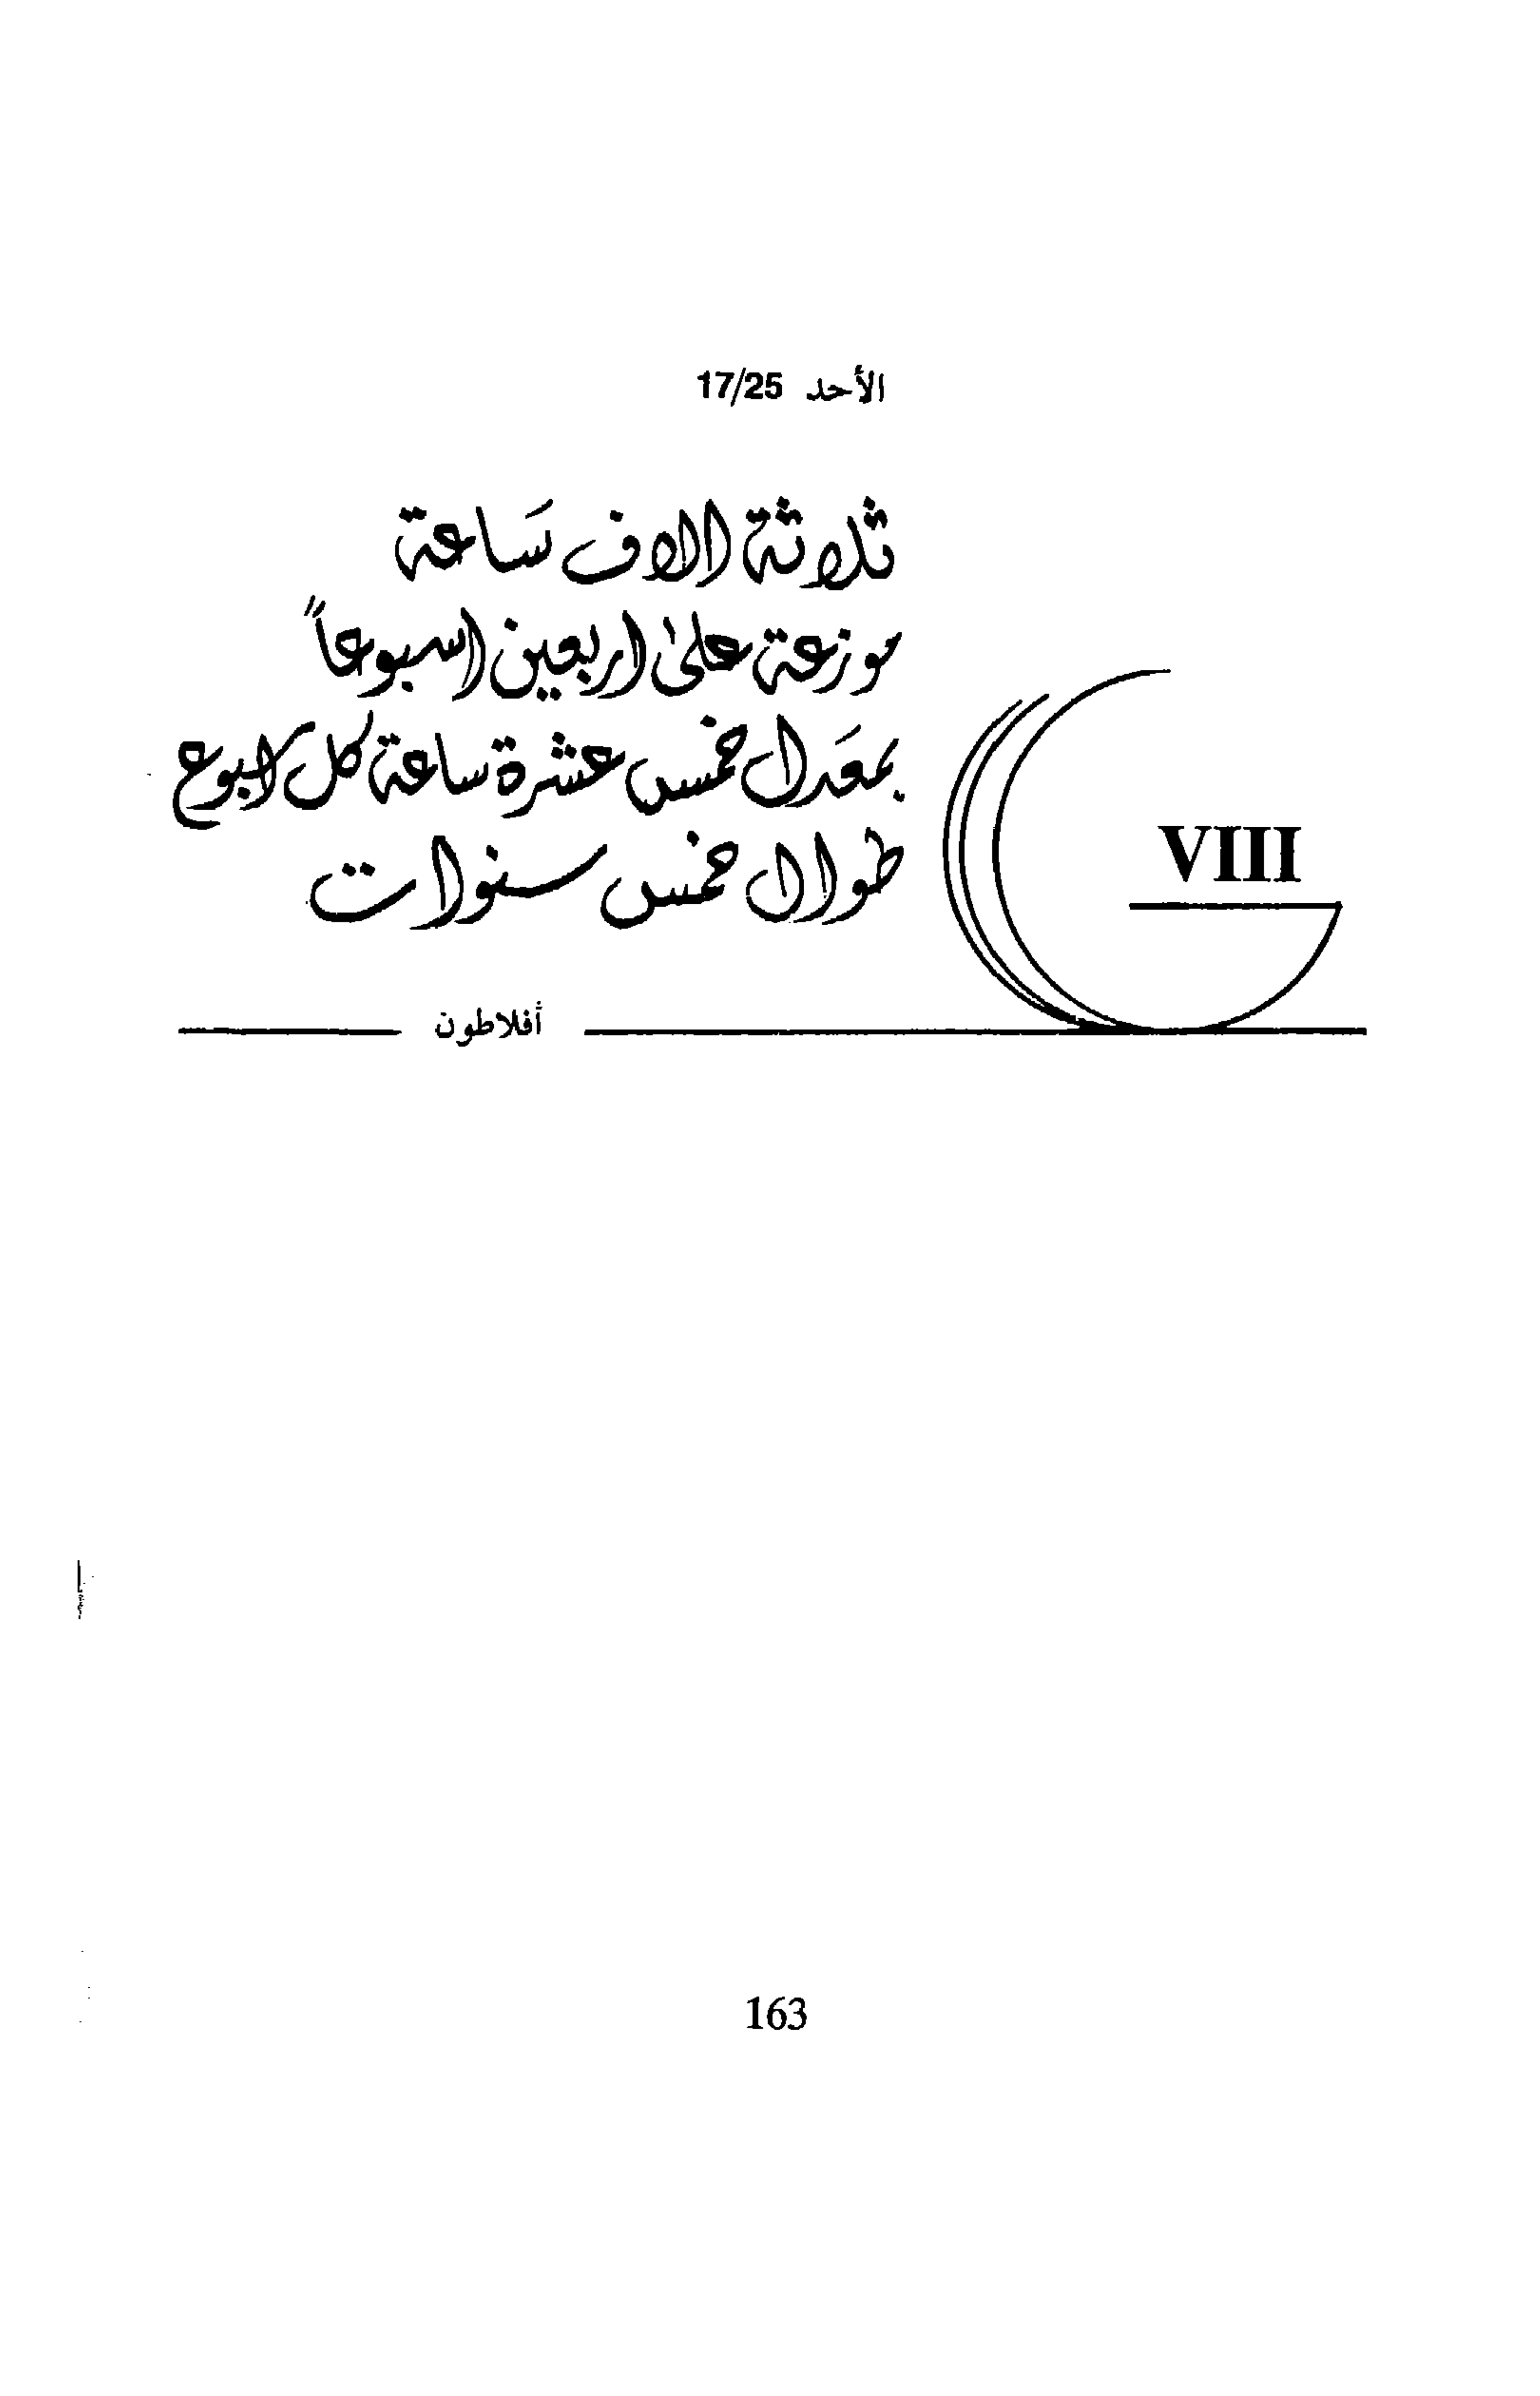 الأحد 17/25
ثلاثة الاف سَاعة
موزعة على اربعين اسبوعاً
بمعَدل خمس عشرة ساعة كل اسبوع
طوال خمس سنوات
VIII
أفلاطون
163